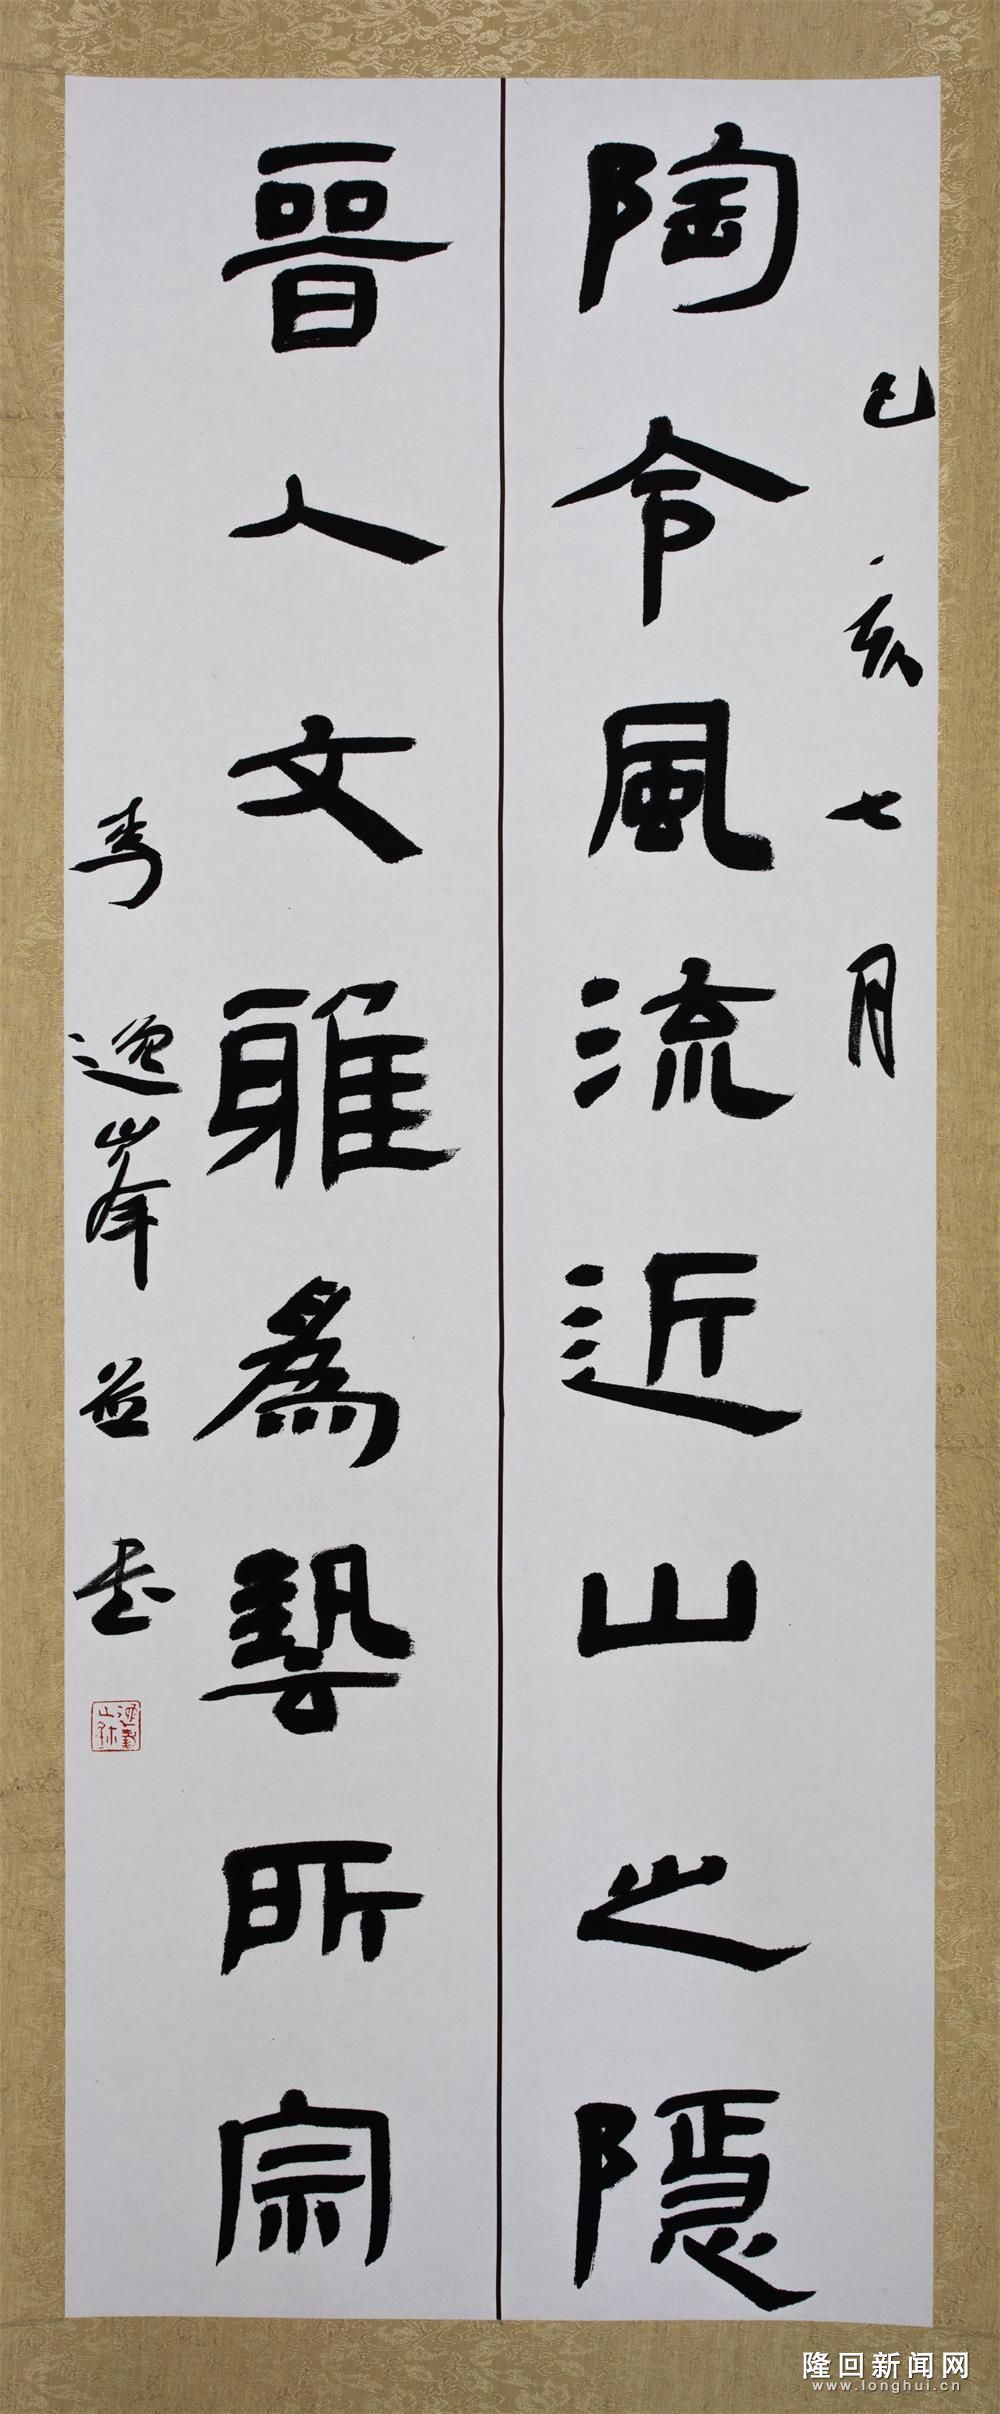 己亥七月
陶令風流近山之隱
晉人文雅為藝所宗
李逸峰並書
隆回新闻网
www.longhui.cn